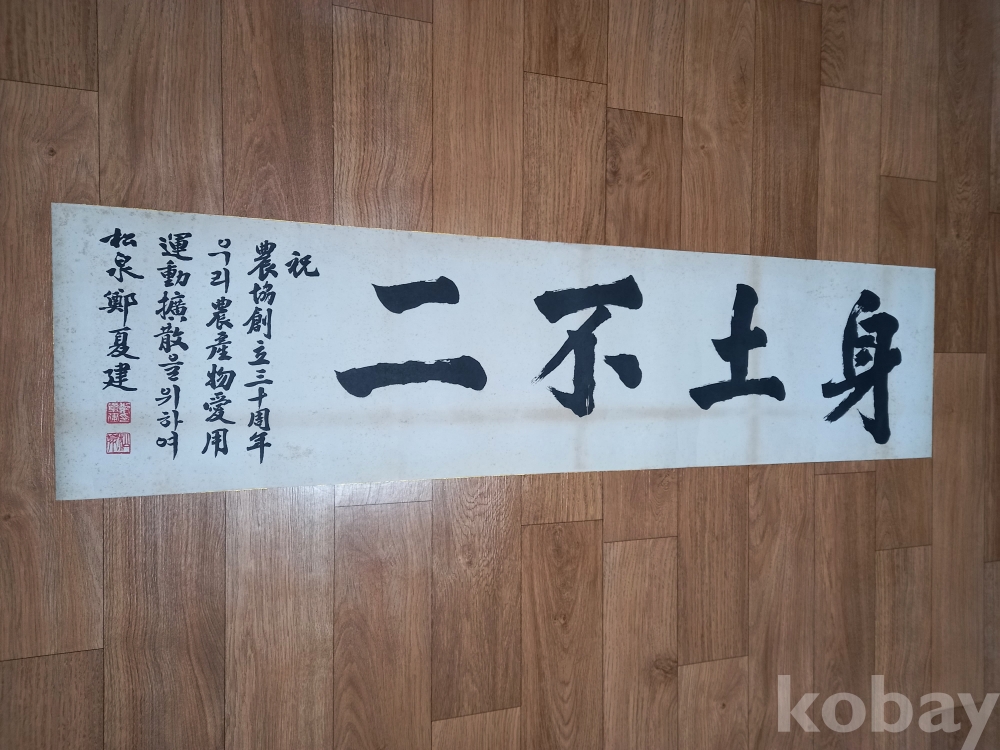 身土不二
祝
農協創立三十周年
우리農產物愛用
運動擴散을위하여
松泉鄭夏建
kobay